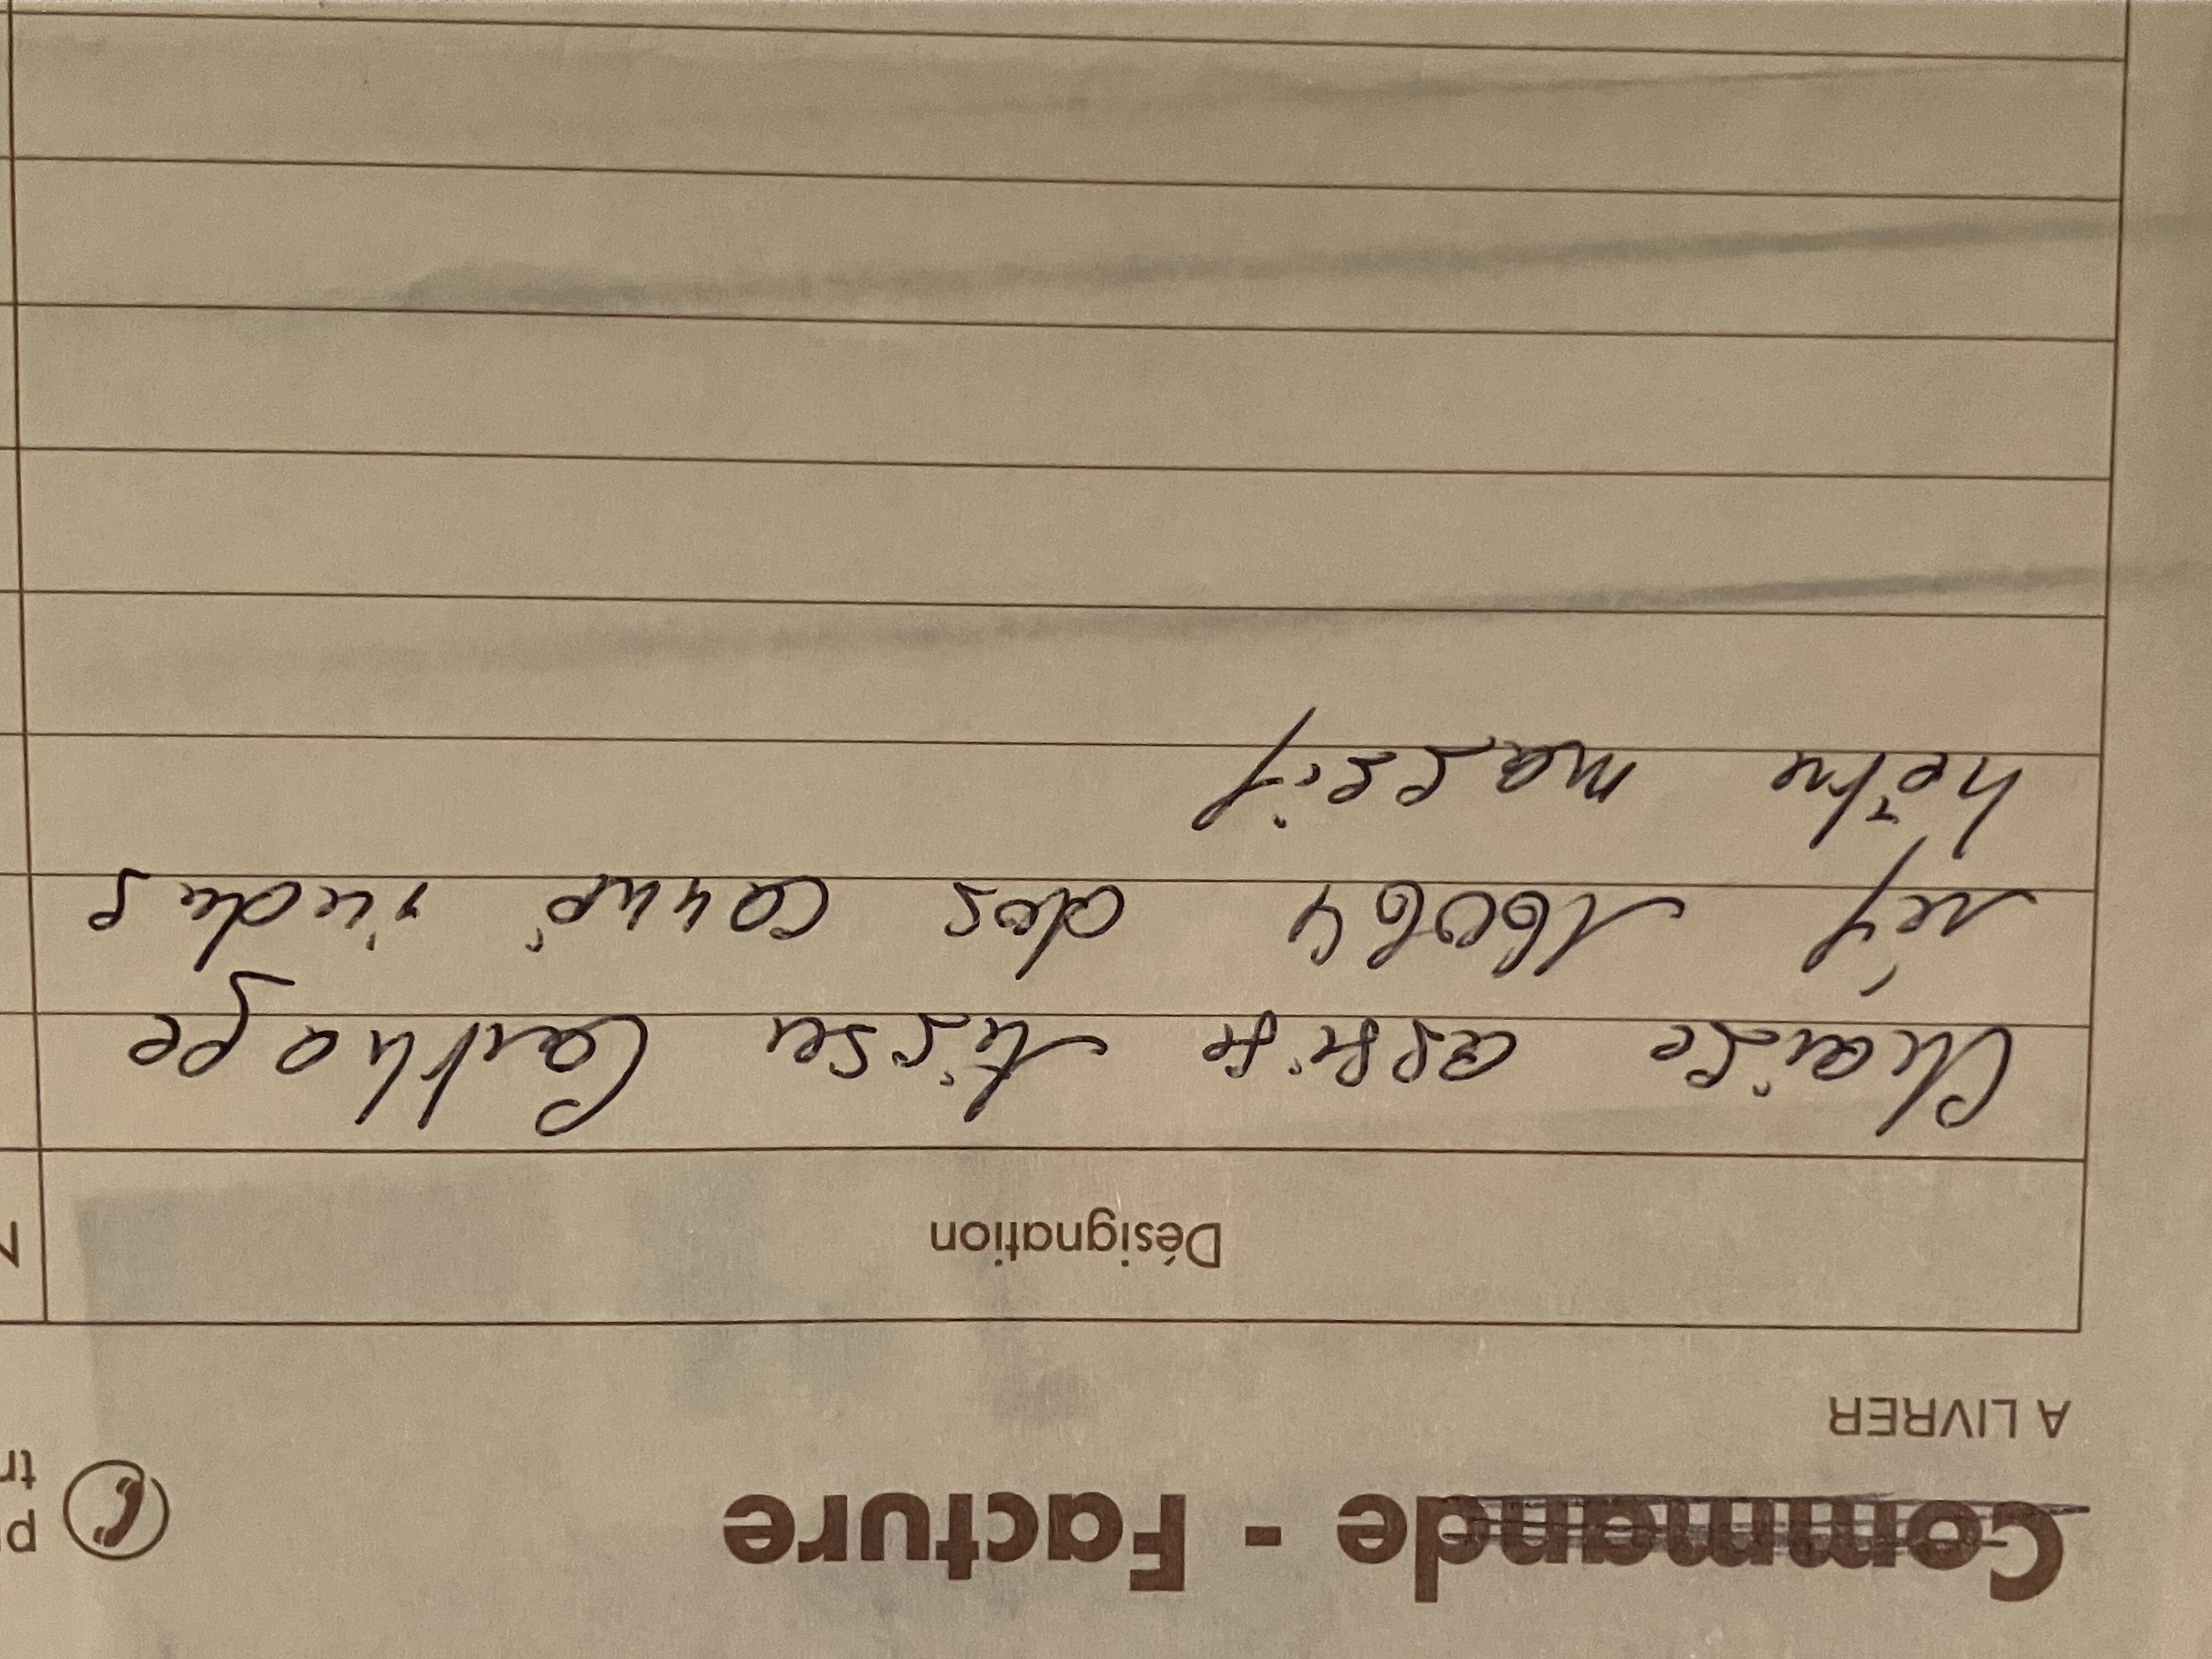 Commande - Facture
A LIVRER
Désignation
Chaise assise tissu Carthage
réf 16064 dos carré
hêtre massif